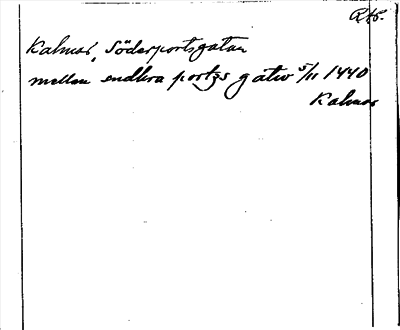 Kalmar, Söderportsgatan
mellan sndhra portzs gatw 5/11 1440
Kalmar